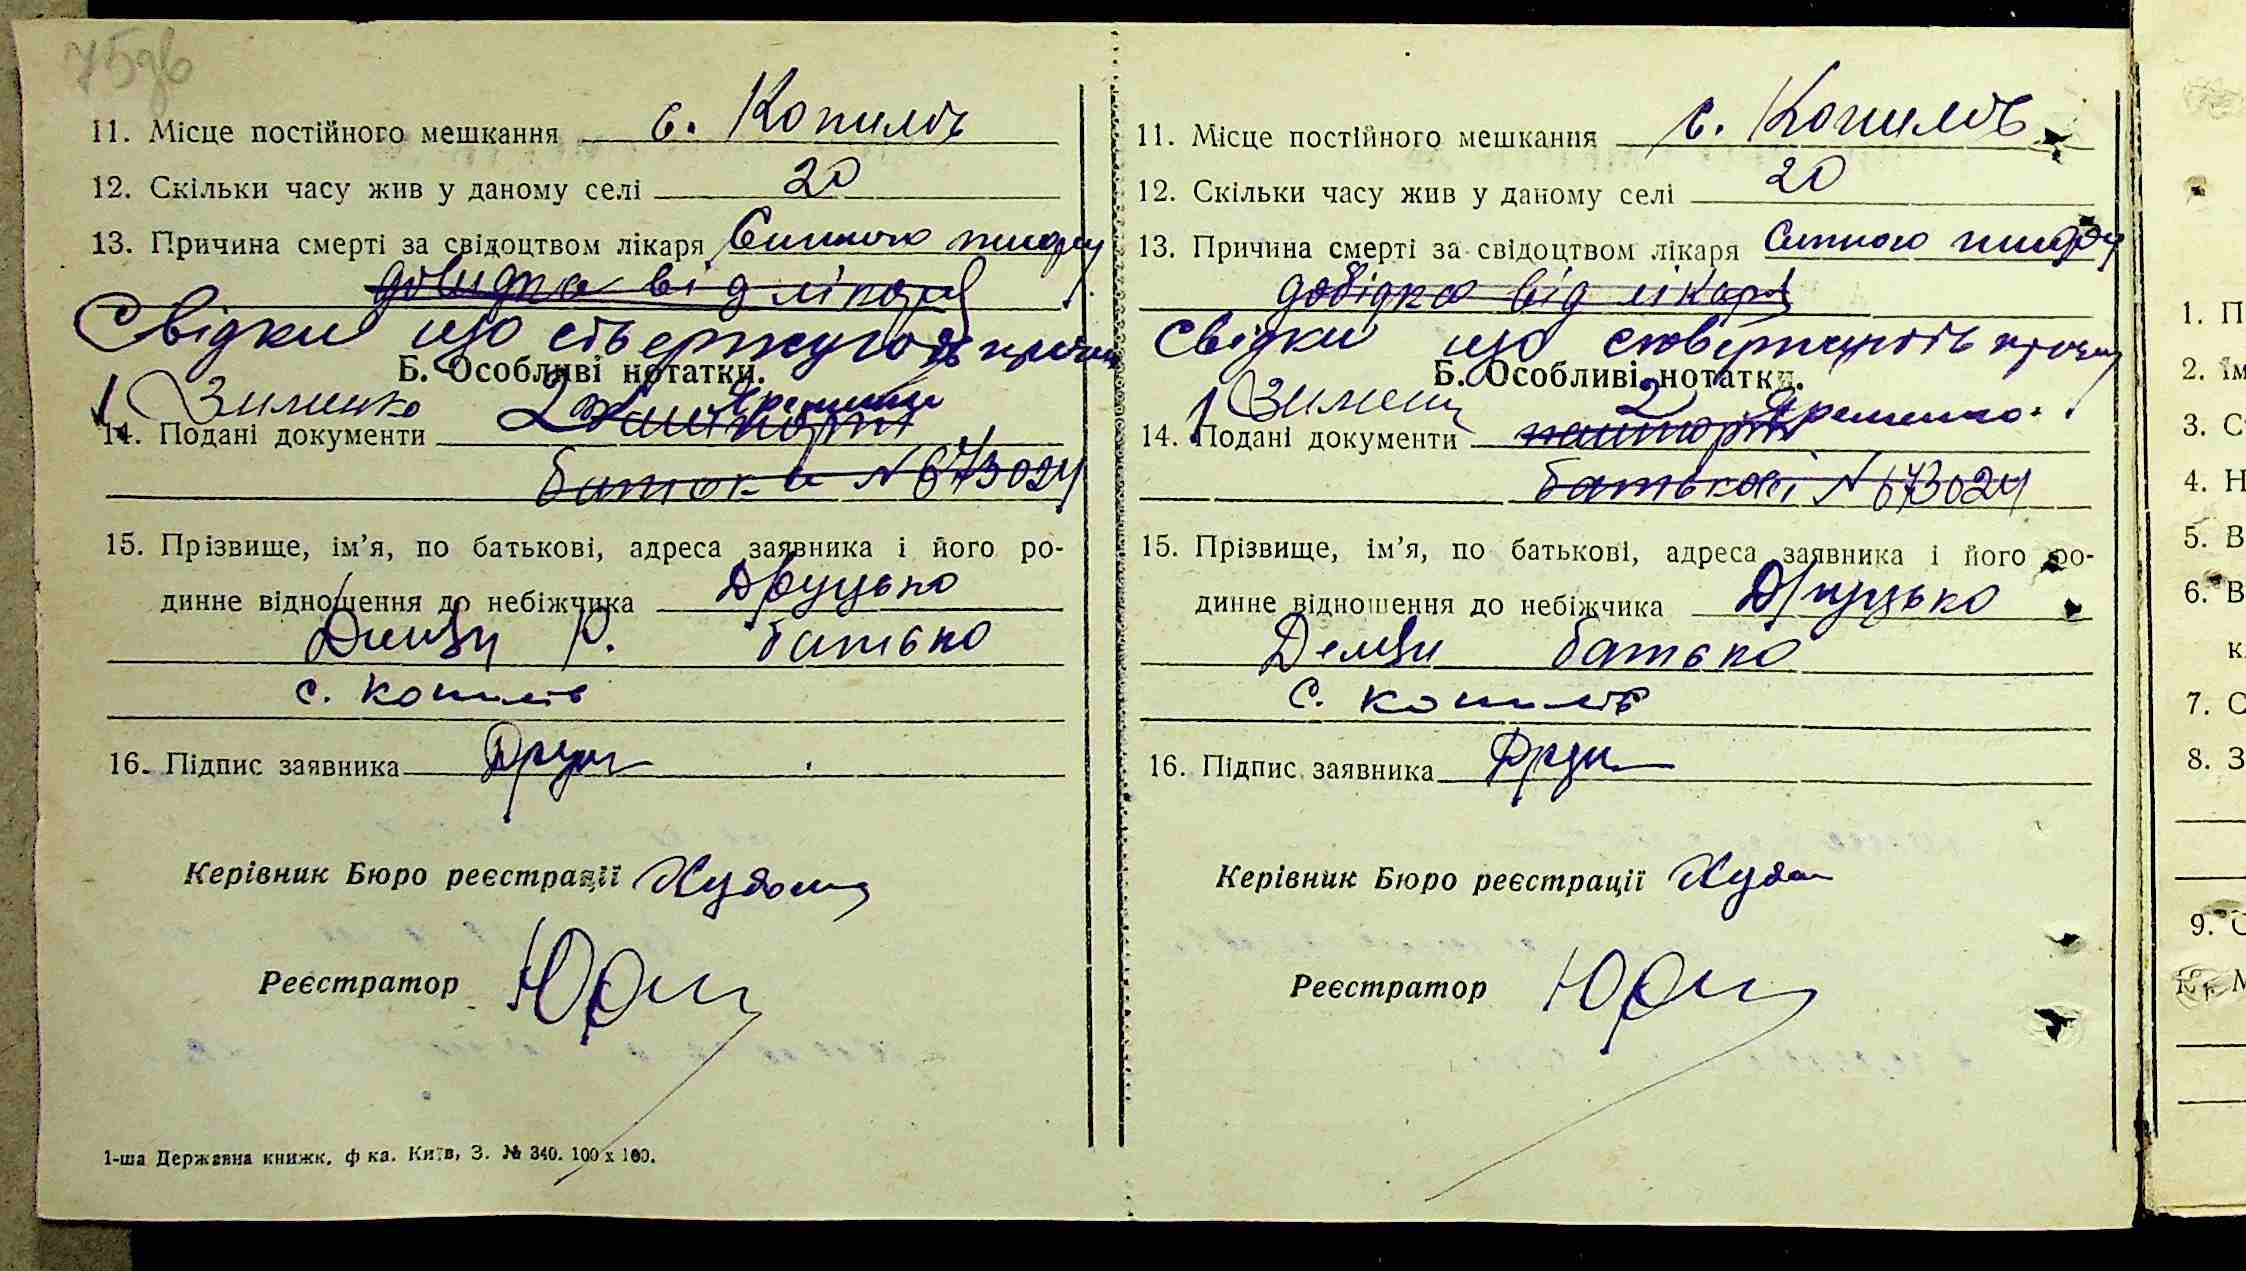 75зв
11. Місце постійного мешкання с. Копилів
12. Скільки часу жив у даному селі 20
13. Причина смерті за свідоцтвом лікаря Сипного тифу
довидка від лікаря
Свідки що ствержують причин
Б. Особливі нотатки.
1 Зименко 2 Яременко
14. Подані документи паспорт
батька N 673024
15. Прізвище, ім'я, по батькові, адреса заявника і його ро-
динне відношення до небіжчика Друцько
Р. батько
с. копилів
16. Підпис заявника
Керівник Бюро реєстрації
Реєстратор
1-ша Державна книжк. ф-ка. Київ, З. № 340. 100 х 100.
11. Місце постійного мешкання с. Копилів
12. Скільки часу жив у даному селі 20
13. Причина смерті за свідоцтвом лікаря Сипного тифу
довідка від лікаря
Свідки що ствержують причину
Б. Особливі нотатки.
1 Зимен 2 Яременко.
14. Подані документи паспорт
батькові N 673024
15. Прізвище, ім'я, по батькові, адреса заявника і його ро-
динне відношення до небіжчика Друцько
батько
с. копилів
16. Підпис заявника
Керівник Бюро реєстрації
Реєстратор
1. П
2. Ім
3. С
4. Н
5. В
6. В
к
7. С
8. З
9. С